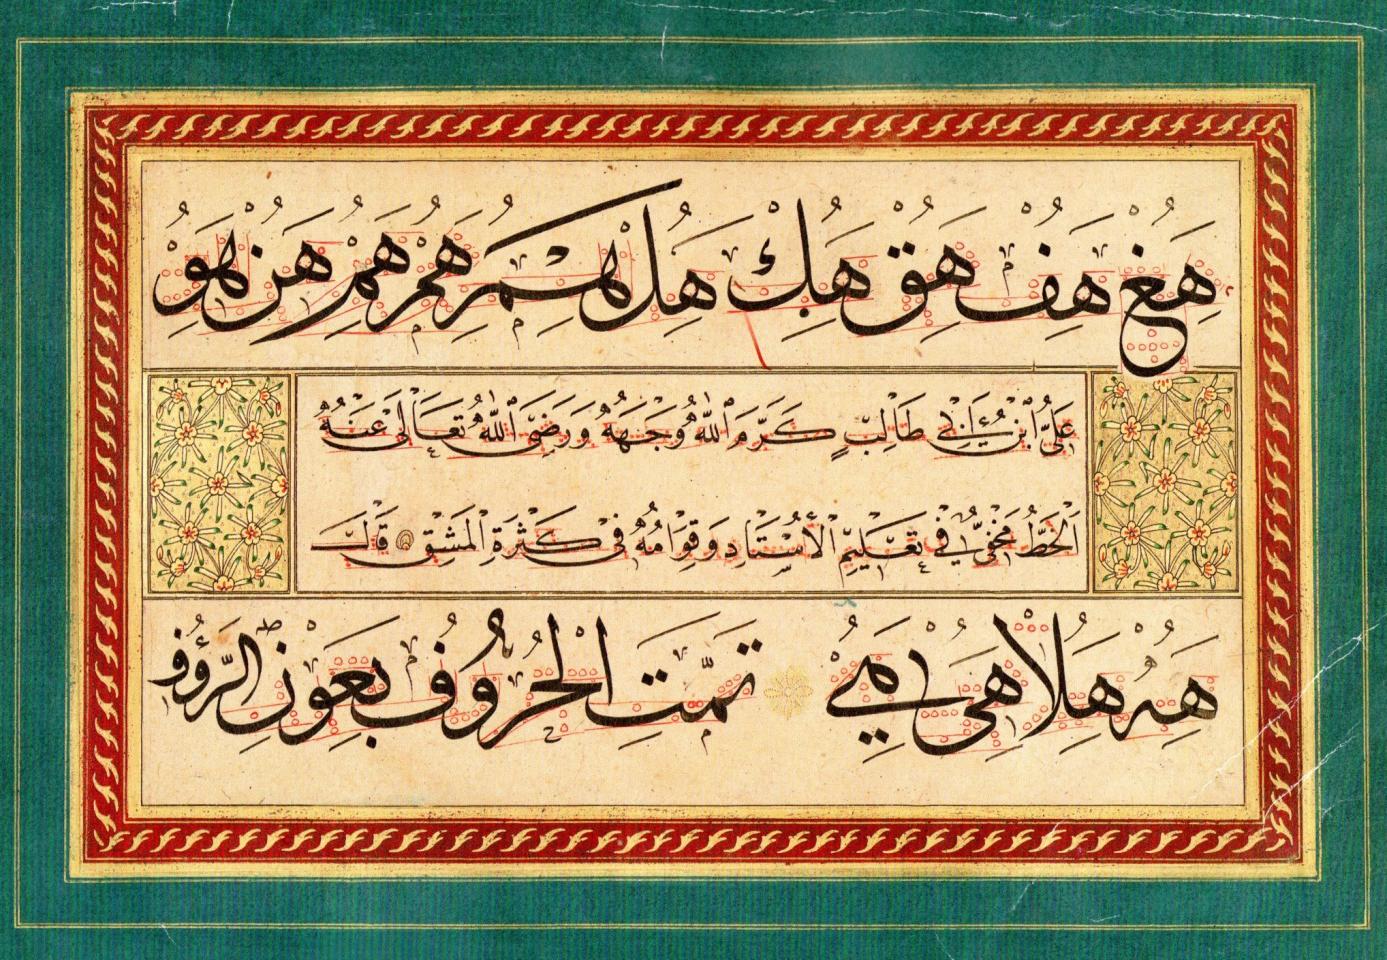 هغ هف هق هك هل هسم هم هم هن هو
علي ابن أبي طالب كرم الله وجهه ورضي الله تعالى عنه
الخط مخفي في تعليم الأستاد وقوامه في كثرة المشق قال
هه هلا هى تمت الحروف بعون الرؤوف